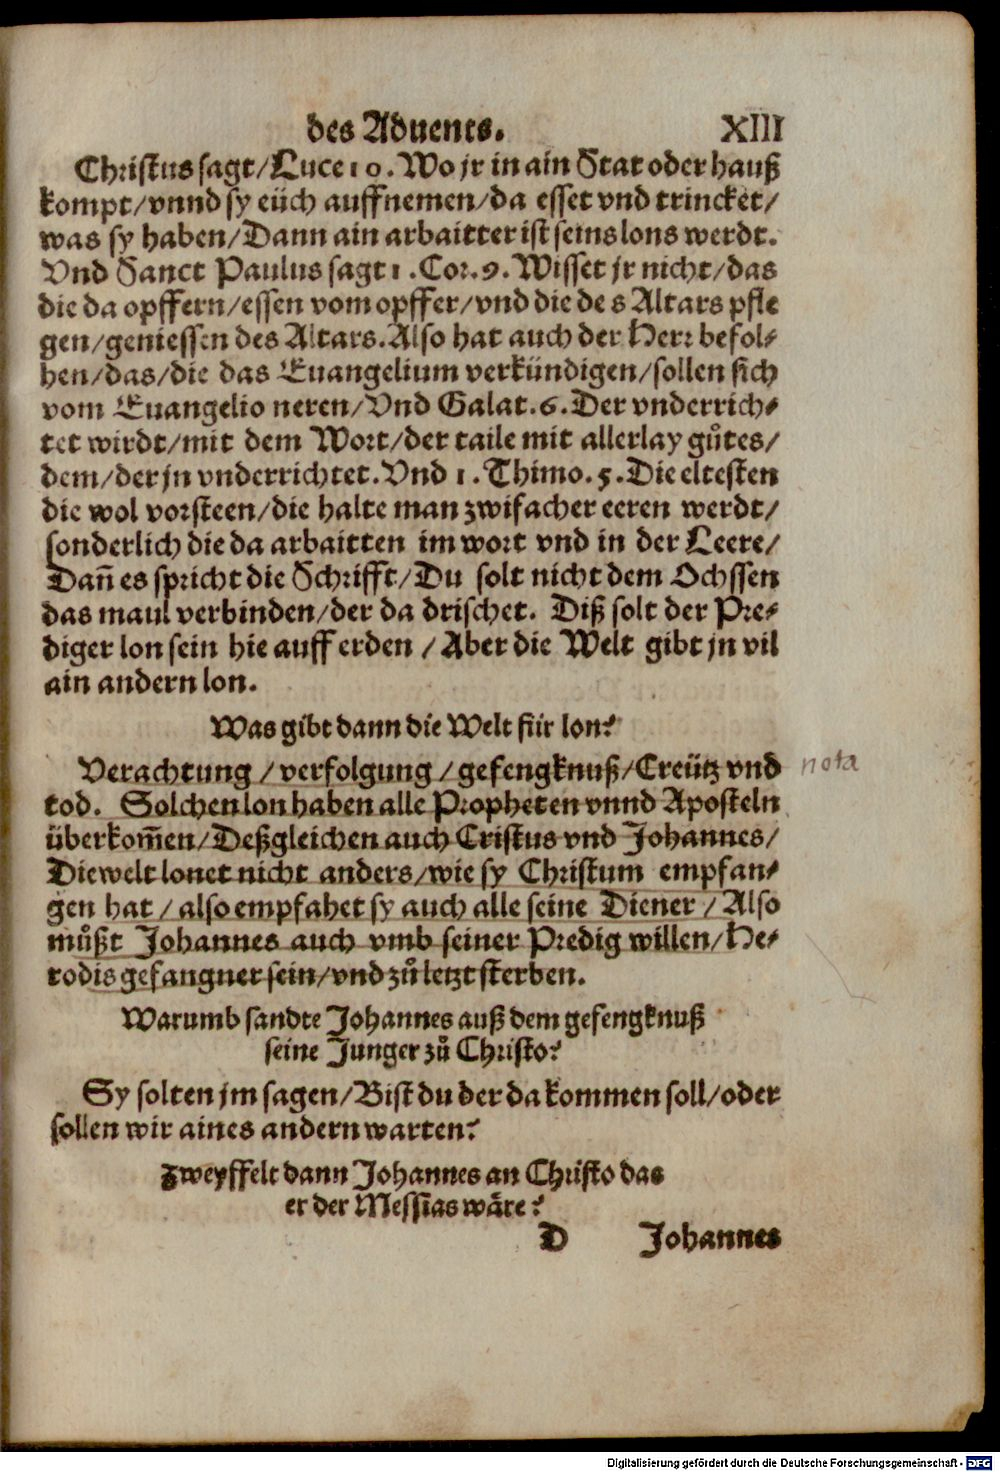 des Aduents. XIII
Christus sagt/Luce 10. Wo jr in ain Stat oder hauß
kompt/vnnd sy eüch auffnemen/da esset vnd trincket/
was sy haben/Dann ain arbaitter ist seins lons werdt.
Vnd Sanct Paulus sagt 1. Cor. 9. Wisset jr nicht/das
die da opffern/essen vom opffer/vnd die des Altars pfle
gen/geniessen des Altars. Also hat auch der Herr befol⸗
hen/das/die das Euangelium verkündigen/sollen sich
vom Euangelio neren/Vnd Galat. 6. Der vnderrich⸗
tet wirdt/mit dem Wort/der taile mit allerlay gůtes/
dem/der jn vnderrichtet. Vnd 1. Thimo. 5. Die eltesten
die wol vorsteen/die halte man zwifacher eeren werdt/
sonderlich die da arbaitten im wort vnd in der Leere/
Dañ es spricht die Schrifft/Du solt nicht dem Ochssen
das maul verbinden/der da drischet. Diß solt der Pre⸗
diger lon sein hie auff erden/Aber die Welt gibt jn vil
ain andern lon.
Was gibt dann die Welt für lon?
Verachtung/verfolgung/gefengknuß/Creütz vnd
nota
tod. Solchen lon haben alle Propheten vnnd Aposteln
überkom̃en/Deßgleichen auch Cristus vnd Johannes/
Die welt lonet nicht anders/wie sy Christum empfan⸗
gen hat/also empfahet sy auch alle seine Diener/Also
můßt Johannes auch vmb seiner Predig willen/He⸗
rodis gefangner sein/vnd zů letzt sterben.
Warumb sandte Johannes auß dem gefengknuß
seine Junger zů Christo?
Sy solten jm sagen/Bist du der da kommen soll/oder
sollen wir aines andern warten?
Zweyffelt dann Johannes an Christo das
er der Messias wäre?
D Johannes
Digitalisierung gefördert durch die Deutsche Forschungsgemeinschaft - DFG